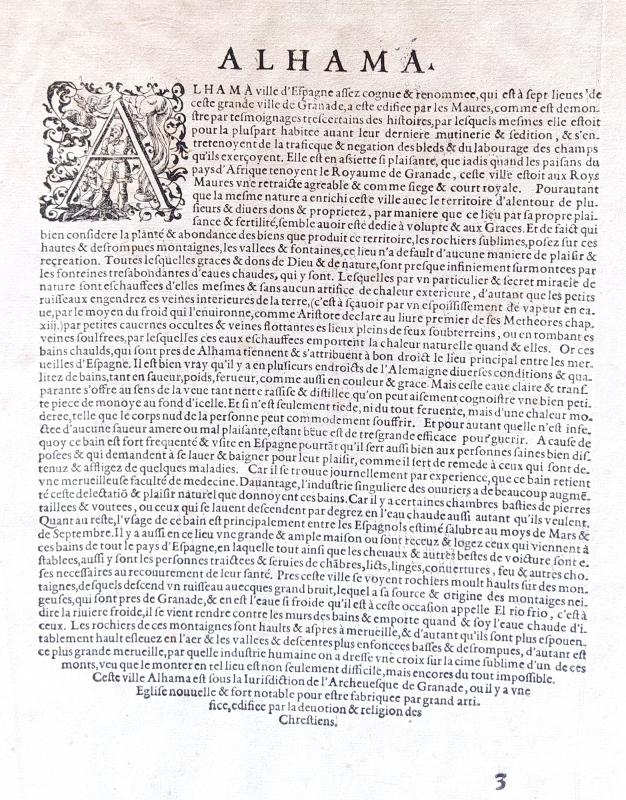 ALHAMA.
ALHAMA ville d'Eſpagne aſſez cognue & renommee, qui eſt à ſept lieues de
ceſte grande ville de Granade, a eſte edifiee par les Maures, comme eſt demon-
ſtre par teſmoignages treſcertains des hiſtoires, par leſquels meſmes elle eſtoit
pour la pluſpart habitee auant leur derniere mutinerie & ſedition, & s'en-
tretenoyent de la traficque & negation des bleds & du labourage des champs
qu'ils exerçoyent. Elle eſt en aſſiette ſi plaiſante, que iadis quand les paiſans du
pays d'Afrique tenoyent le Royaume de Granade, ceſte ville eſtoit aux Roys
Maures vne retraicte agreable & comme ſiege & court royale. Pourautant
que la meſme nature a enrichi ceſte ville auec le territoire d'alentour de plu-
ſieurs & diuers dons & proprietez, par maniere que ce lieu par ſa propre plai-
ſance & fertilité, ſemble auoir eſt dedié a volupte & aux Graces. Et de faict qui
bien conſidere la planté & abondance des biens que produit ce territoire, les rochiers ſublimes, poſez ſur ces
hautes & deſrompues montaignes, les vallees & fontaines, ce lieu n'a default d'aucune maniere de plaiſir &
recreation. Toutes leſquelles graces & dons de Dieu & de nature, ſont preſque infiniement ſurmontees par
les fonteines treſabondantes d'eaues chaudes, qui y ſont. Leſquelles par vn particulier & ſecret miracle de
nature ſont eſchauffees d'elles meſmes & ſans aucun artifice de chaleur exterieure, d'autant que les petits
ruiſſeaux engendrez es veines interieures de la terre, (c'eſt à ſçauoir par vn eſpoiſſiſſement de vapeur en ea-
ue, par le moyen du froid qui l'enuironne, comme Ariſtote declare au liure premier de ſes Metheores chap.
xiij.) par petites cauernes occultes & veines flottantes es lieux pleins de feux ſoubterreins, ou en tombant es
veines ſoulfrees, par leſquelles ces eaux eſchauffees emportent la chaleur naturelle quand & elles. Or ces
bains chaulds, qui ſont pres de Alhama tiennent & s'attribuent à bon droict le lieu principal entre les mer-
ueilles d'Eſpagne. Il eſt bien vray qu'il y a en pluſieurs endroicts de l'Alemaigne diuerſes conditions & qua-
litez de bains, tant en ſaueur, poids, ferueur, comme auſſi en couleur & grace. Mais ceſte eaue claire & tranſ-
parante s'offre au ſens de la veue tant nette raſſiſe & diſtillee, qu'on peut aiſement cognoiſtre vne bien peti-
te piece de monoye au fond d'icelle. Et ſi n'eſt ſeulement tiede, ni du tout feruente, mais d'vne chaleur mo-
deree, telle que le corps nud de la perſonne peut commodement ſouffrir. Et pour autant quelle n'eſt infe-
ctée d'aucune ſaueur amere ou mal plaiſante, eſtant beüe eſt de treſgrande efficace pour guerir. A cauſe de
quoy ce bain eſt fort frequenté & vſite en Eſpagne pourtãt qu'il ſert auſſi bien aux perſonnes ſaines bien diſ-
poſees & qui demandent a ſe lauer & baigner pour leur plaiſir, comme il ſert de remede à ceux qui ſont de-
tenuz & affligez de quelques maladies. Car il ſe trouue journellement par experience, que ce bain retient
vne merueilleuſe faculté de medecine. Dauantage, l'induſtrie ſinguliere des ouuriers a de beaucoup augmẽ-
té ceſte delectatiõ & plaiſir naturel que donnoyent ces bains. Car il y a certaines chambres baſties de pierres
taillees & voutees, ou ceux qui ſe lauent deſcendent par degrez en l'eau chaude auſſi autant qu'ils veulent.
Quant au reſte, l'vſage de ce bain eſt principalement entre les Eſpagnols eſtimé ſalubre au moys de Mars &
de Septembre. Il y a auſſi en ce lieu vne grande & ample maiſon ou ſont receuz & logez ceux qui viennent à
ces bains de tout le pays d'Eſpagne, en laquelle tout ainſi que les cheuaux & autres beſtes de voicture ſont e-
ſtablees, auſſi y ſont les perſonnes traictees & ſeruies de chãbres, licts, linges, couuertures, feu & autres cho-
ſes neceſſaires au recouurement de leur ſanté. Pres ceſte ville ſe voyent rochiers moult haults ſur des mon-
taignes, deſquels deſcend vn ruiſſeau auecques grand bruit, lequel a ſa ſource & origine des montaiges nei-
geuſes, qui ſont pres de Granade, & en eſt l'eaue ſi froide qu'il eſt à ceſte occaſion appelle El rio frio, c'eſt à
dire la riuiere froide, il ſe vient rendre contre les murs des bains & emporte quand & ſoy l'eaue chaude d'i-
ceux. Les rochiers de ces montaignes ſont haults & aſpres à merueille, & d'autant qu'ils ſont plus eſpouen-
tablement hault eſleuez en l'aer & les vallees & deſcentes plus enfoncees baſſes & deſrompues, d'autant eſt
ce plus grande merueille, par quelle induſtrie humaine on a dreſſe vne croix ſur la cime ſublime d'un de ces
monts, veu que le monter en tel lieu eſt non ſeulement difficile, mais encores du tout impoſſible.
Ceſte ville Alhama eſt sous la Iurisdiction de l'Archeueſque de Granade, ou il y a vne
Egliſe nouuelle & fort notable pour eſtre fabriquee par grand arti-
fice, edifiee par la deuotion & religion des
Chreſtiens.
3